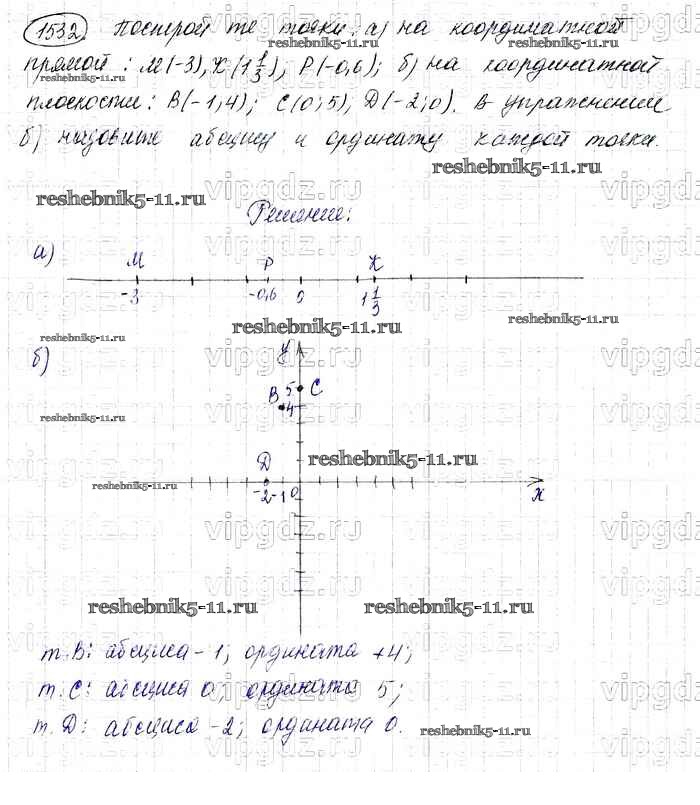 1532 Постройте точки: а) на координатной
reshebnik5-11.ru
прямой: М(-3), К(1 1/3), Р(-0,6); б) на координатной
плоскости: В(-1;4); С(0;5), D(-2;0). В упражнении
б) назовите абсциссу и ординату каждой точки.
reshebnik5-11.ru
vipgdz.ru
reshebnik5-11.ru
Решение:
vipgdz.ru
а)
М Р К
-3 -0,6 0 1 1/3
reshebnik5-11.ru
reshebnik5-11.ru
reshebnik5-11.ru
б)
у
vipgdz.ru
5 С
В 4
reshebnik5-11.ru
vipgdz.ru
D
reshebnik5-11.ru
reshebnik5-11.ru
-2 -1 0 х
vipgdz.ru
vipgdz.ru
reshebnik5-11.ru reshebnik5-11.ru
т. В: абсциса -1; ордината +4;
т. С: абсциса 0; ордината 5;
т. D: абсциса -2; ордината 0.
reshebnik5-11.ru